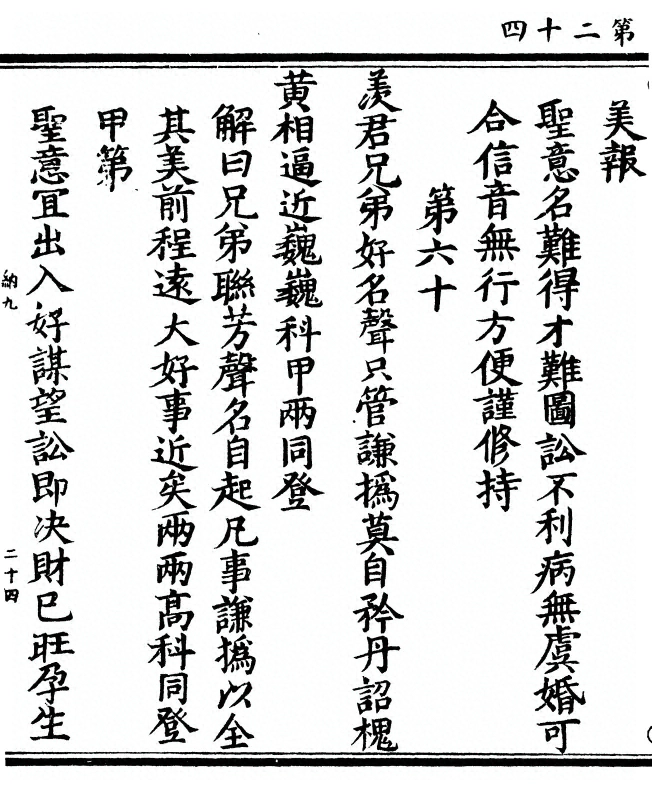 第二十四
美報
聖意名難得才難圖訟不利病無虞婚可
合信音無行方便謹修持
第六十
羨君兄弟好名聲只管謙撝莫自矜丹詔槐
黄相逼近巍巍科甲兩同登
解曰兄弟聯芳聲名自起凡事謙撝以全
其美前程遠大好事近矣兩兩高科同登
甲第
聖意冝出入好謀望訟即决財巳旺孕生
納九
二十四